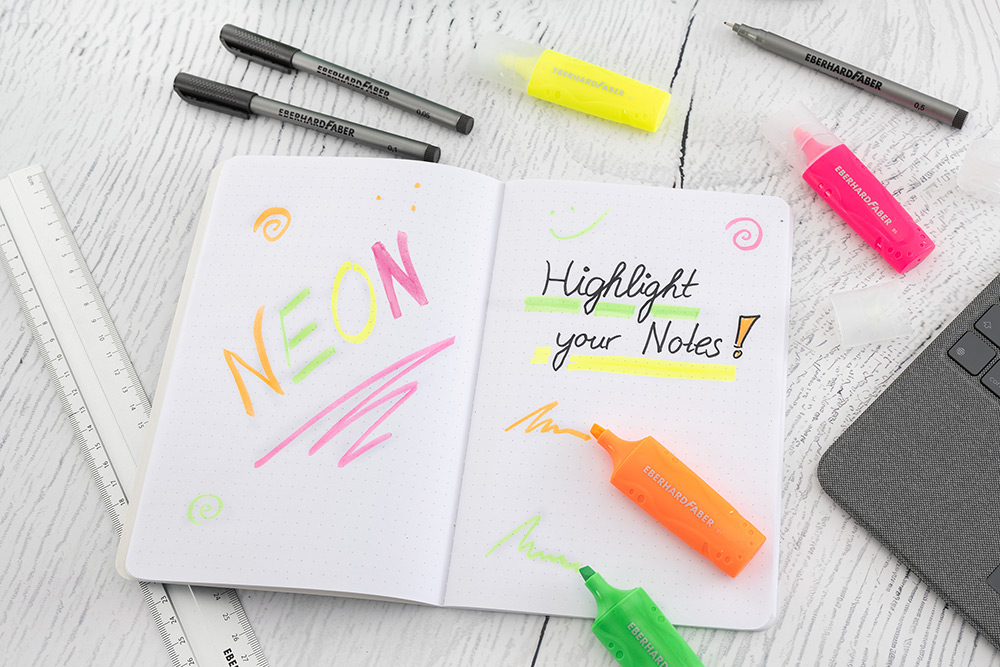 EBERHARDFABER
0.05
EBERHARDFABER
0.1
EBERHARDFABER
EBERHARDFABER
0.5
EBERHARDFABER
NEON
Highlight
your Notes!
EBERHARDFABER
EBERHARDFABER
14
15
16
17
18
19
23
24
25
26
24
25
26
27
EBER